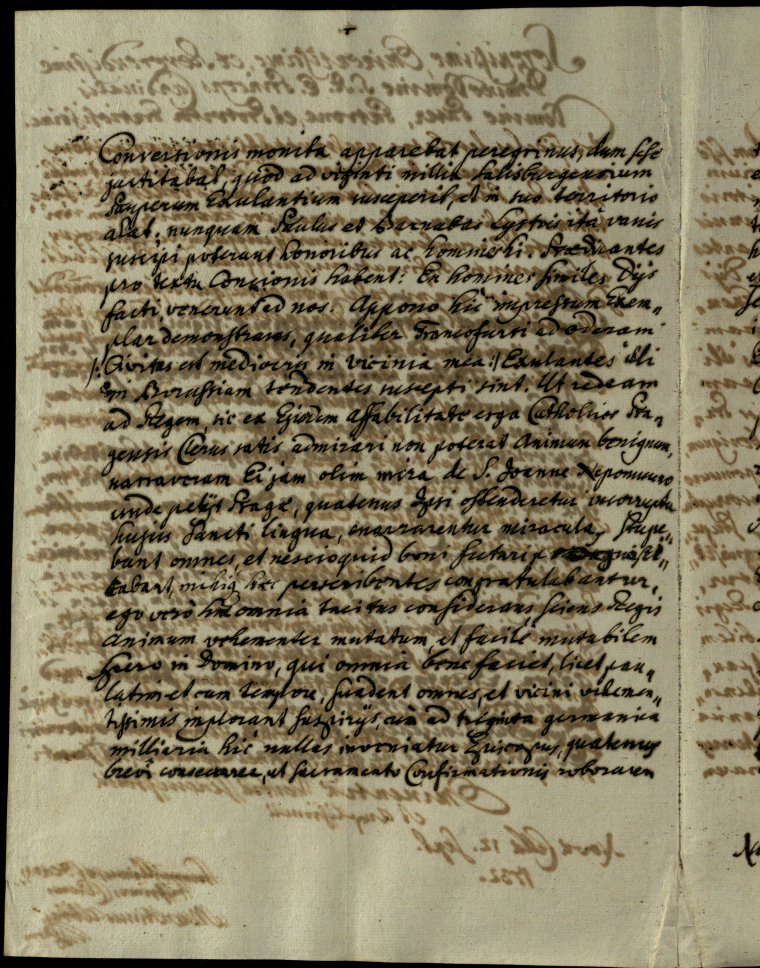 Conversionis monita apparebat peregrinus, dum sese
jactitabat, quod ad viginti millia Salisburgensium
Pauperum Exulantium susceperit, et in suo territorio
alat. nunquam Paulus et Barnabas Lystris ita variis
suscipi poterant honoribus ac hommeski. Prædicantes
pro textu Concionis habent: Ex homines similes Dijs
facti, venerunt ad nos. Appono hic impressum Exem„
plar demonstrans, qualiter Francofurti ad Oderam
/: Civitas est mediocris in vicinia mea :/ Exulantes illi
in Borussiam tendentes suscepti sint. Ut redeam
ad Regem, sic ex Ejusdem affabilitate erga Catholicos Pra„
gensis Clerus satis admirari non poterat Animum benignum,
narraveram Ei jam olim mira de S. Joanne Nepomuceno
unde petijt Pragæ, quatenus Ipsi ostenderetur incorrupta
hujus Sancti lingua, enarrarentur miracula, Stupe„
bant omnes, et nescio quid boni futuri
mihiq hæc perscribentes congratulabantur,
ego vero hæc omnia tacitus considerans sciens Regis
Animum vehementer mutatum, et facile mutabilem
spero in Domino, qui omnia bene faciet, licet pau„
latim et cum tempore, suadent omnes, et vicini vehemen„
tissimis implorant suspirijs, cum ad triginta germanica
milliaria hic nullus inveniatur Episcopus, quatenus
brevi consecrarer, ut Sacramento Confirmationis roborarem